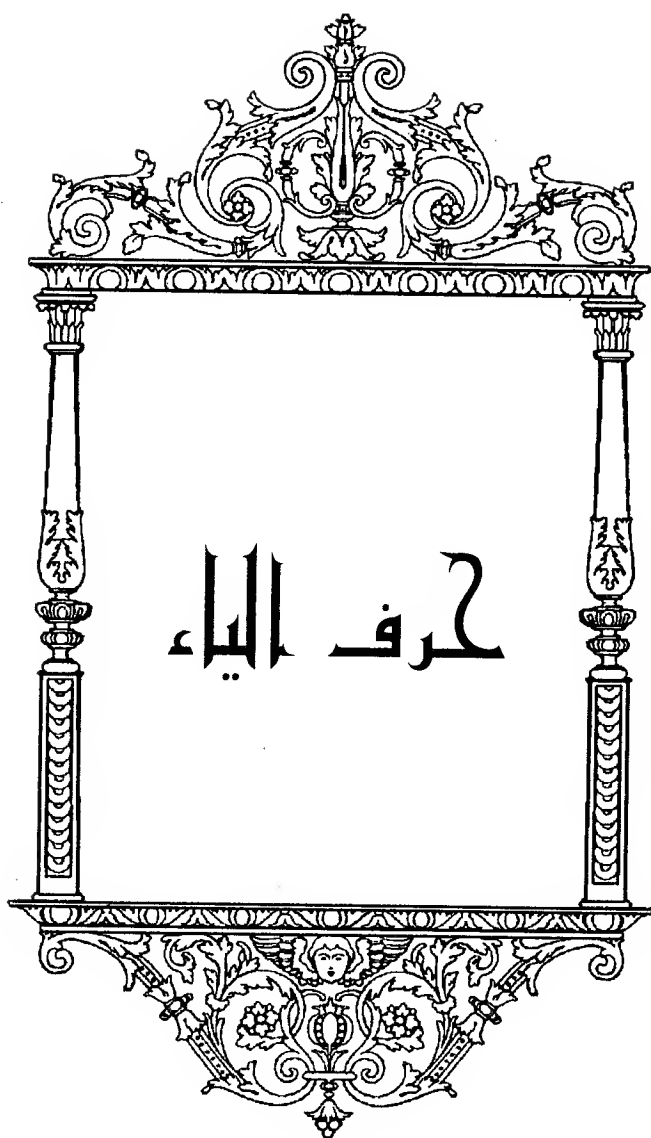 حرف الياء